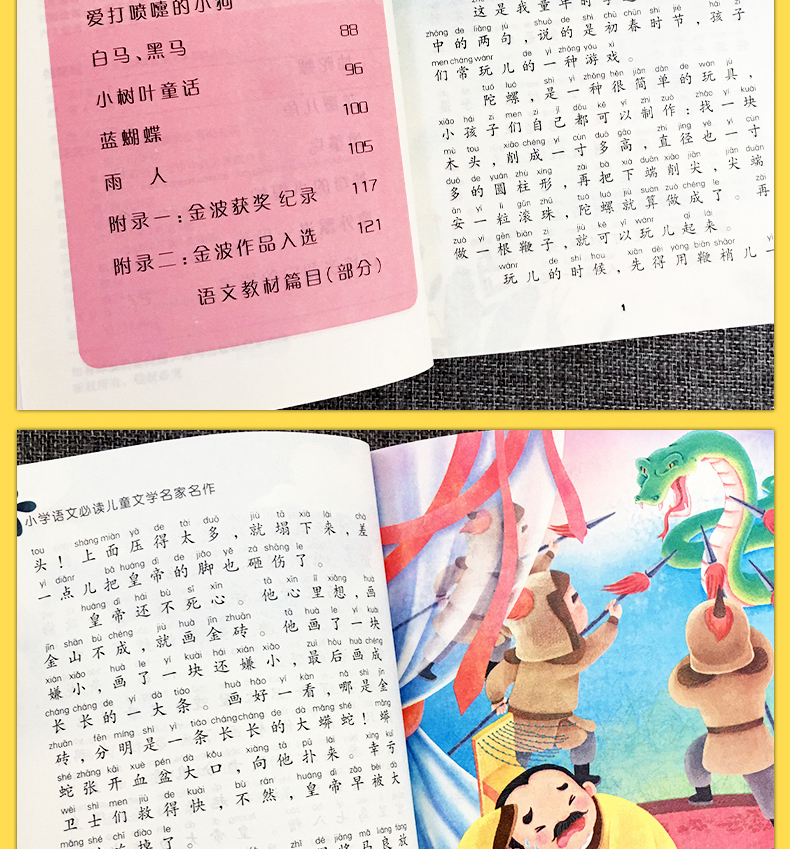 爱打喷嚏的小狗
88
白马、黑马
96
小树叶童话
100
蓝蝴蝶
105
雨 人
附录一:金波获奖 纪录 117
附录二:金波作品入选 121
语文教材篇目(部分)
这是我童年时
zhōng de liǎng jù, shuō de shì chū chūn shí jié hái zi
中的两句,说的是初春时节,孩子
men cháng wánr de yì zhǒng yóu xì
们常玩儿的一种游戏。
tuó luó shì yì zhǒng hěn jiǎn dān de wán jù
陀螺,是一种很简单的玩具,
xiǎo hái zi men zì jǐ dōu kě yǐ zhì zuò zhǎo yí kuài
小孩子们自己都可以制作:找一块
mù tou xiāo chéng yí cùn duō gāo zhí jìng yě yí cùn
木头,削成一寸多高,直径也一寸
duō de yuán zhù xíng zài bǎ xià duān xiāo jiān jiān duān
多的圆柱形,再把下端削尖,尖端
ān yí lì gǔn zhū tuó luó jiù suàn zuò chéng le zài
安一粒滚珠,陀螺就算做成了。再
zuò yì gēn biān zi jiù kě yǐ wánr qǐ lái
做一根鞭子,就可以玩儿起来。
wánr de shí hou xiān děi yòng biān shāor
玩儿的时候,先得用鞭梢儿一
1
小学语文必读儿童文学名家名作
tou shàng miàn yā de tài duō jiù tā xià lái chà
头!上面压得太多,就塌下来,差
yì diǎnr bǎ huáng dì de jiǎo yě zá shāng le
一点儿把皇帝的脚也砸伤了。
huáng dì hái bù sǐ xīn tā xīn lǐ xiǎng huà
皇帝还不死心。他心里想,画
jīn shān bù chéng jiù huà jīn zhuān tā huà le yí kuài
金山不成,就画金砖。他画了一块
xián xiǎo huà le yí kuài hái xián xiǎo zuì hòu huà chéng
嫌小,画了一块还嫌小,最后画成
cháng cháng de yí dà tiáo huà hǎo yí kàn nǎ shì jīn
长长的一大条。画好一看,哪是金
zhuān fēn míng shì yì tiáo cháng cháng de dà mǎng shé mǎng
砖,分明是一条长长的大蟒蛇!蟒
shé zhāng kāi xuè pén dà kǒu xiàng tā pū lái xìng kuī
蛇张开血盆大口,向他扑来。幸亏
wèi shì men jiù de kuài bù rán huáng dì zǎo bèi dà
卫士们救得快,不然,皇帝早被大
mǎng shé chī diào le